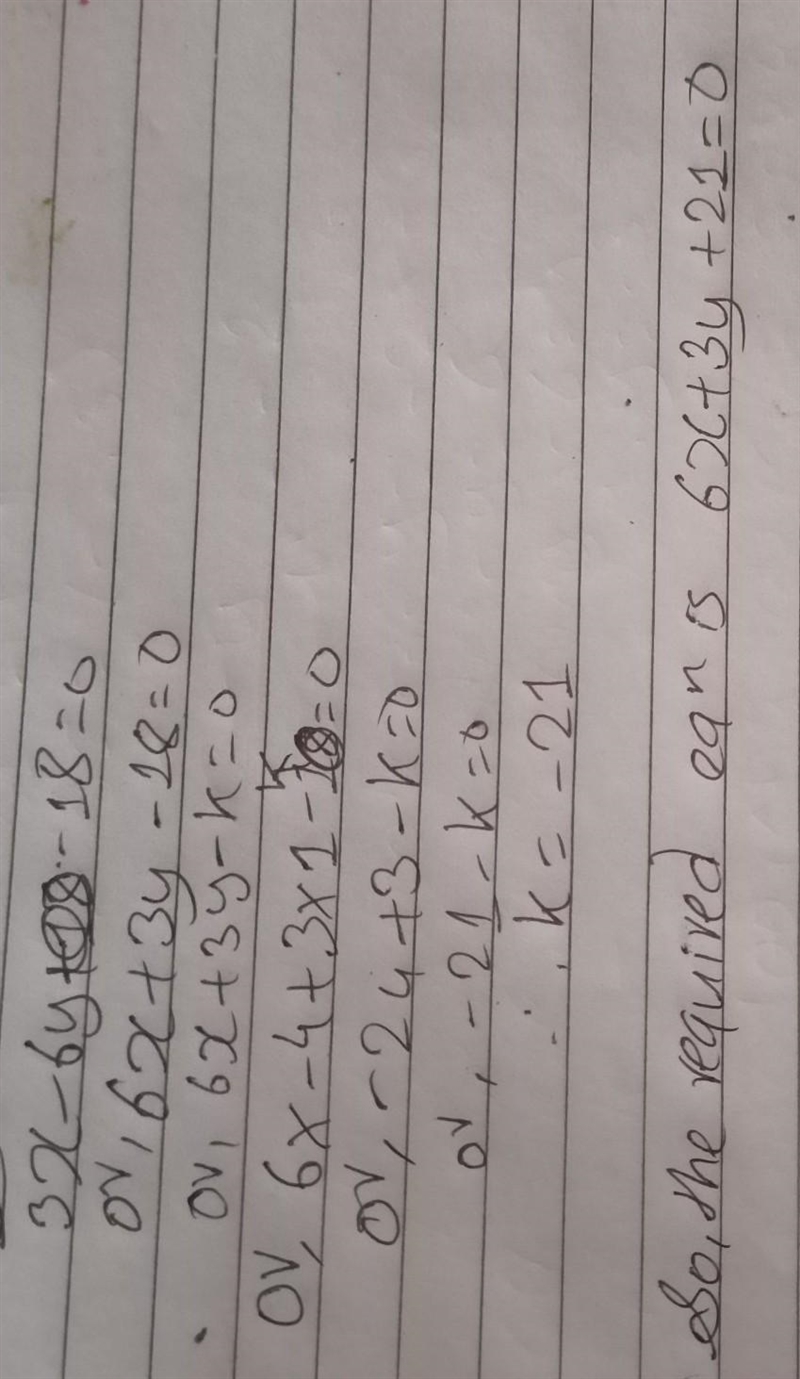 3x-6y+ -18=0
or, 6x+3y-18=0
or, 6x+3y-k=0
or, 6x-4+3x1-k=0
or, -24+3-k=0
or, -21-k=0
∴ k=-21
So, the required eqn is 6x+3y+21=0